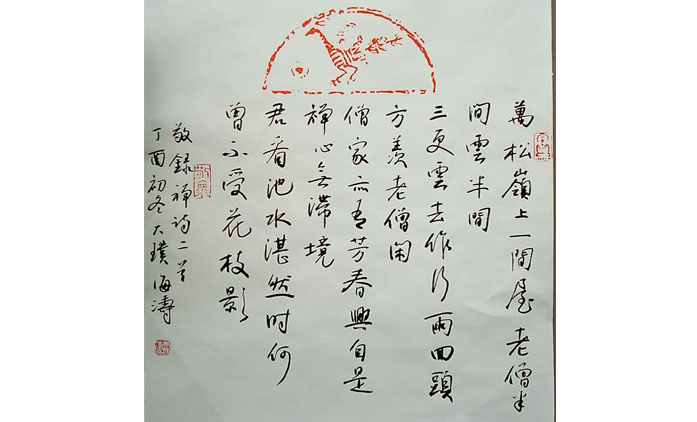 萬松嶺上一間屋老僧半
間雲半間
三更雲去作行雨回頭
方羨老僧閑
僧家亦有芳春興自是
禅心無滞境
君看池水湛然时何
曾不受花枝影
敬録禅诗二首
丁酉初冬大璞海濤